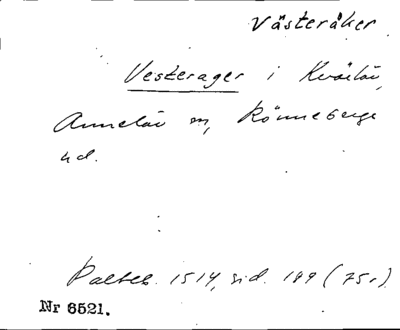 Västeråker
Vesterager i Kvärlöv,
Annelöv sn, Rönnebergs
hd.
Palteb. 1514, sid. 199 (75r)
Nr 6521.